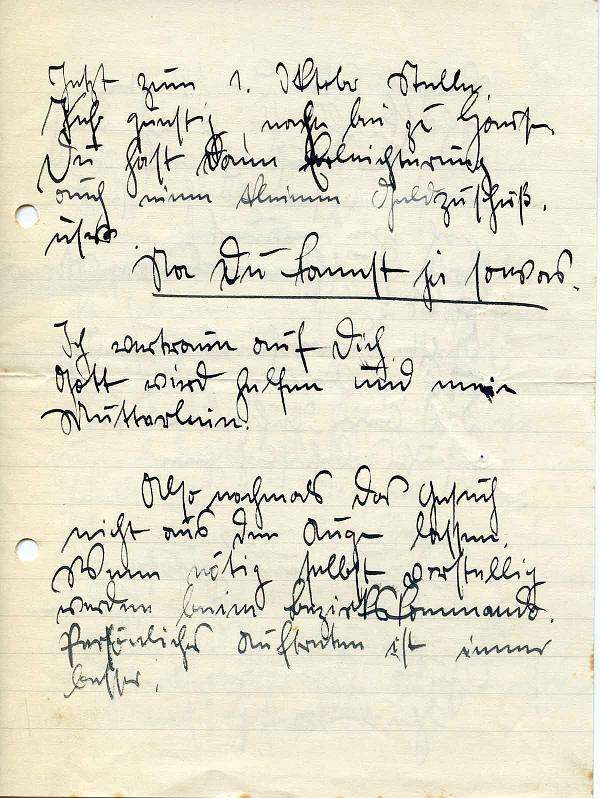 Jetzt zum 1. Oktober Stelle,
Sehr günstig, nahe bei zu Hause.
Du hast dann Erleichterung
auch einen kleinen Geldzuschuß.
usw.
Na Du kannst ja sowas.
Ich vertraue auf Dich
Gott wird helfen und mein
Mutterlein.
Also nochmals das Gesuch
nicht aus dem Auge lassen.
Wenn nötig selbst vorstellig
werden beim Bezirkskommando.
Persönliches Auftreten ist immer
besser.